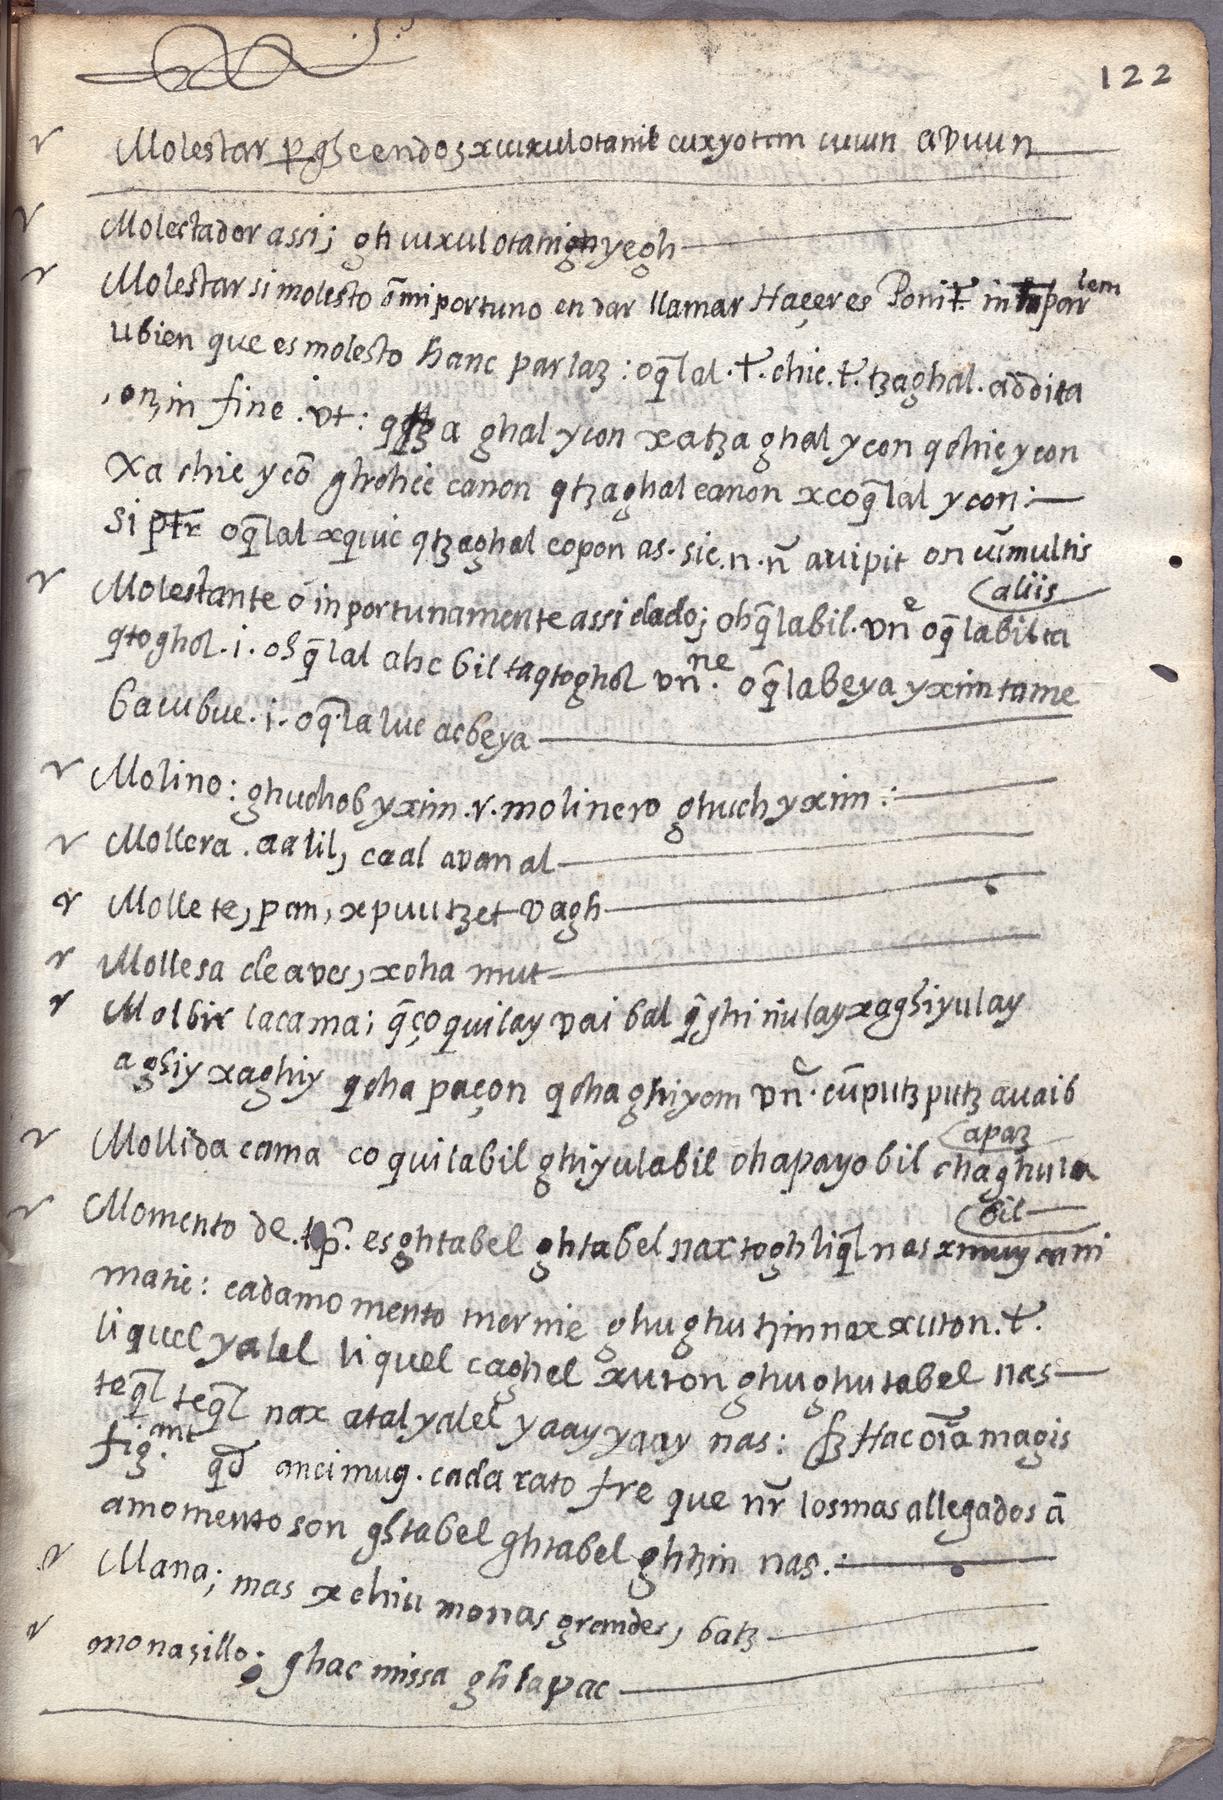 122
Molestar p̱ għeendoʒ xuuxulotanik cuxyotem cuun avuun
Molestador assi; gh uixulotanighyegh
Molestar si molesto o͂ miportuno en dar llamar Haçer es Poni t̄. in par lem
u bien que es molesto hanc parlaz: oq̄lal. t̄. chic. t̄. tʒaghal. addita
, on, in fine. vt: q a ghal ycon xatʒaghal ycon qchic ycon
Xa chic yco͂ canon qtʒaghal canon xcoq̄lal ycon:
si oq̄lal xquic qtʒaghal copon as. sic. n. n͂ auipit on cu͂ multis
aliis
Molestante o inportunamente assi dado; ohq̄labil. vn͂ e oq̄labil ta
qtoghol. i. oh q̄lal ahc bil taqtoghol vn͂ ne. oq̄labeya yximtame
bacubuc. i. oq̄laluc acbeya
Molino: ghuchob yxim. r. molinero ghuch yxim:
Mollera. aalil, caal avan al
Mollete, pan, xpuutʒet vagh
Mollesa de aves, xcha mut
Mollir lacama; q̄ço quilay vai bal q̄ghi niulay xaghiyulay
aghiy xaghiy qcha paçon qcha ghiyom vn͂. cu͂ putʒputʒ avaib
Mollida cama coquilabil ghiyulabil chapayobil apaz
chaghula
bil
Momento de. tp̄o. es ghtabel ghtabel nax toghliq̄l nas x
matic: cadamomento mernie ghughutʒin nax xuton. t̄.
liquel yalel liquel caghel xuton ghughutabel nas
teq̄l teq̄l nax atal yalel yaay yaay nas: sʒ Hac oīa magis
fig.ant qd̄ ancimug. cada rato fre que nr̄ losmas allegados a͂
amomento son ghtabel ghtabel ghtʒin nas.:
Mana; mas xchiu monas grandes, batʒ
monaʒillo; ghac missa gh lapac